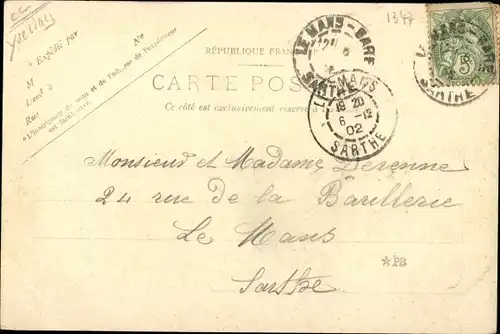 cc
Yvelines
1347
Expédié par
No
M
RÉPUBLIQUE FRAN
CARTE POS
Ce côté est exclusivement réservé à
Rue
«L'inscription du nom et de l'adresse de l'expéditeur
est facultative.
LE MANS - GARE
SARTHE
LE MANS
19 20
6 -12
02
SARTHE
LE MANS - GARE
SARTHE
Monsieur et Madame Derenne
24 rue de la Barillerie
Le Mans
Sarthe
*PB